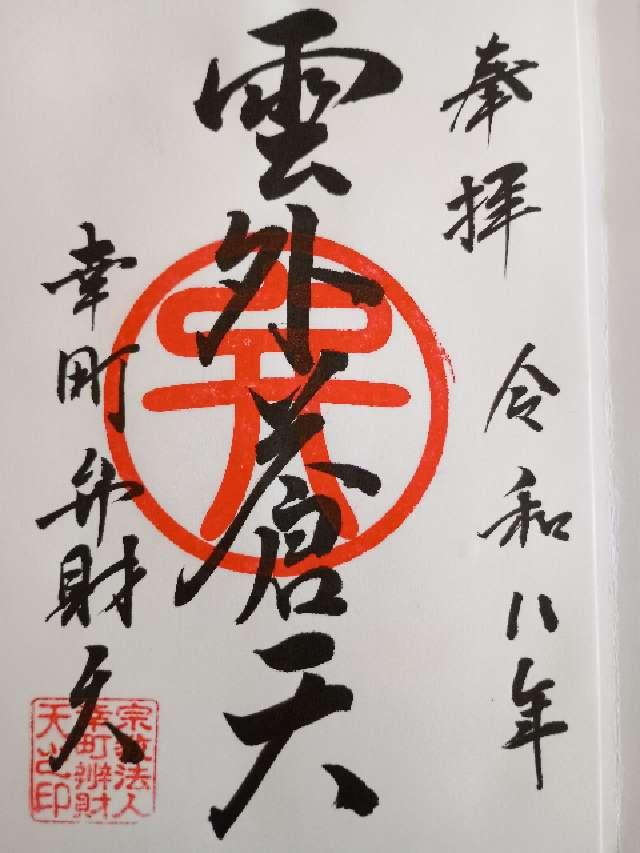 奉拝 令和八年
雲外蒼天
幸町弁財天
宗教法人
幸町辨財
天之印